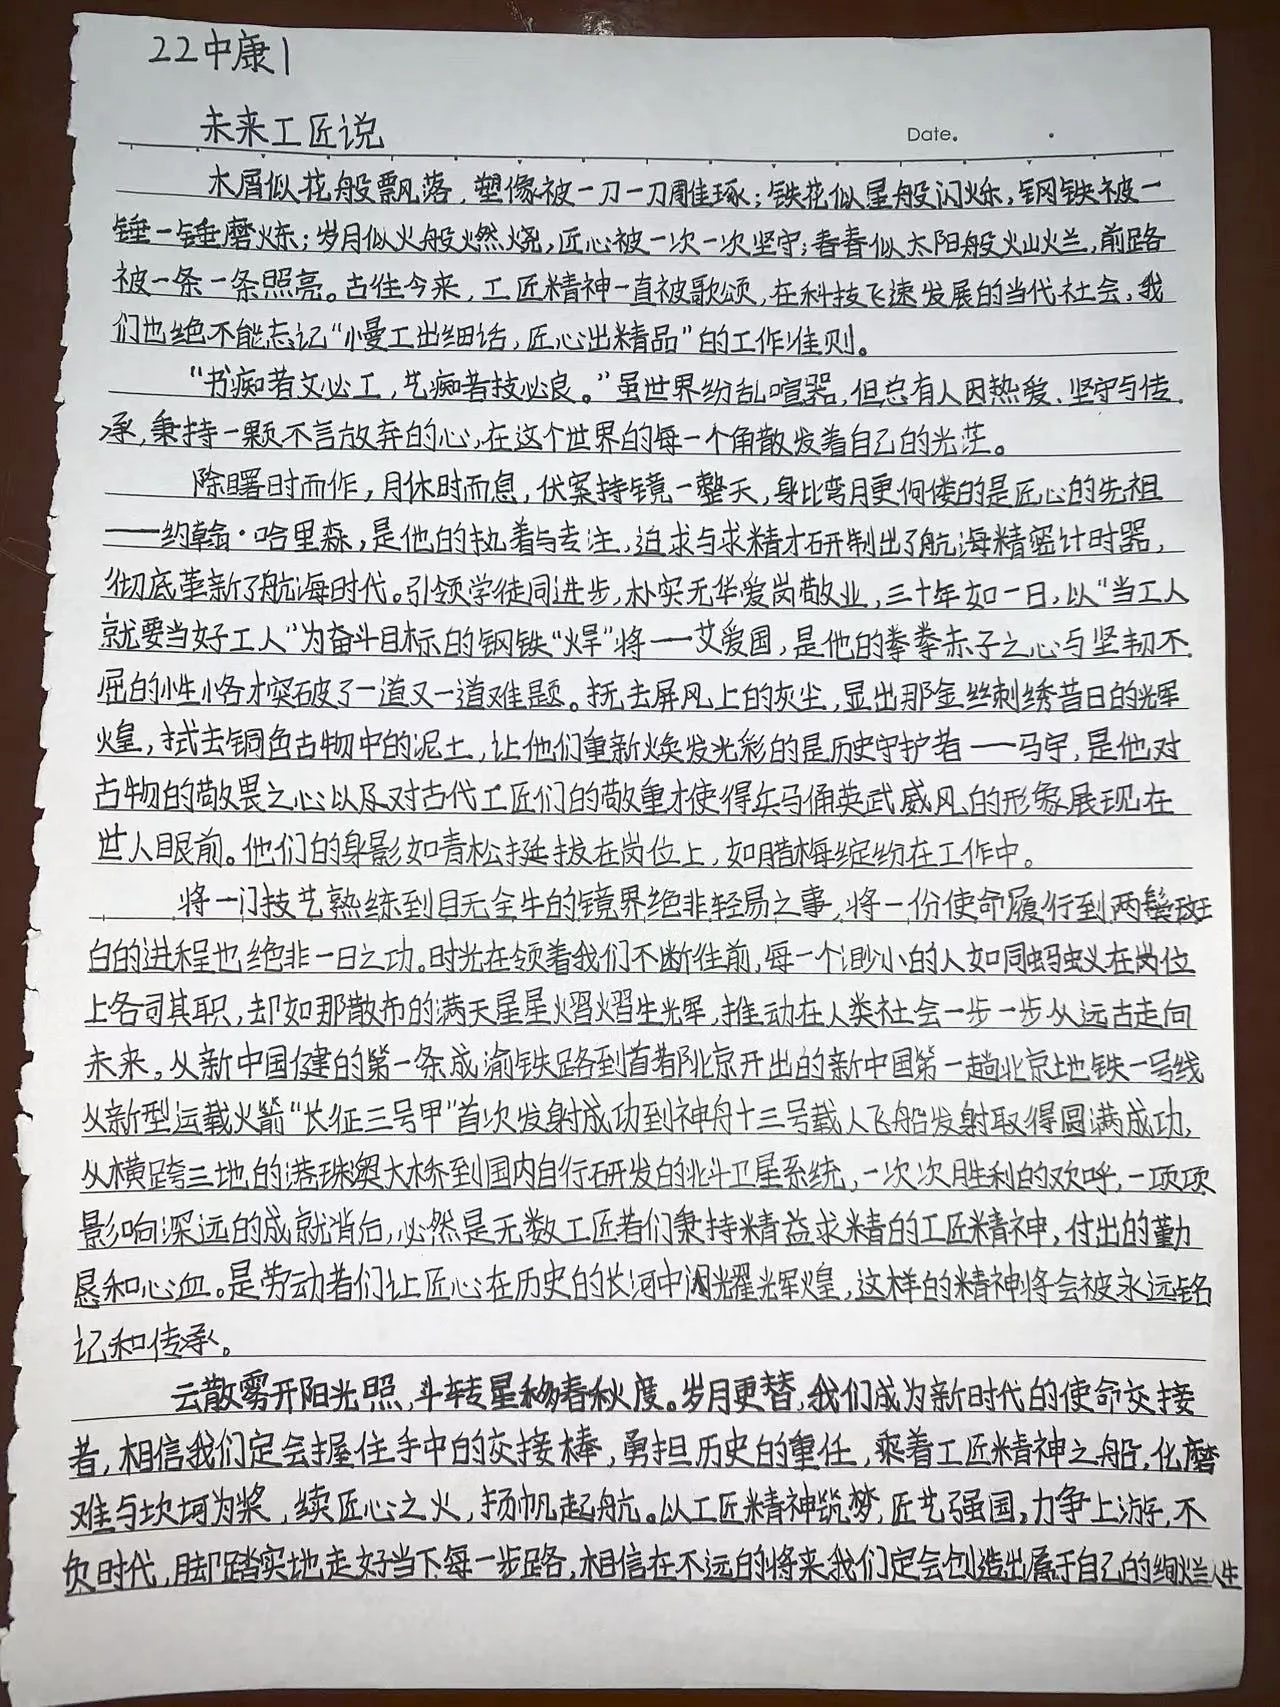 22中康1
未来工匠说
Date.
木屑似花般飘落，塑像被一刀一刀雕琢；铁花似星般闪烁，钢铁被一
锤一锤磨炼；岁月似火般燃烧，匠心被一次一次坚守；春春似太阳般火山火兰，前路
被一条一条照亮。古往今来，工匠精神一直被歌颂，在科技飞速发展的当代社会，我
们也绝不能忘记“慢工出细活，匠心出精品”的工作准则。
“书痴者文必工，艺痴者技必良。”虽世界纷乱喧嚣，但总有人因热爱、坚守与传
承，秉持一颗不言放弃的心，在这个世界的每一个角散发着自己的光茫。
除曙时而作，月休时而息，伏案持镜一整天，身比弯月更佝偻的是匠心的先祖
——约翰·哈里森，是他的执着与专注，追求与求精才研制出了航海精密计时器，
彻底革新了航海时代。引领学徒同进步，朴实无华爱岗敬业，三十年如一日，以“当工人
就要当好工人”为奋斗目标的钢铁“焊”将——艾爱国，是他的拳拳赤子之心与坚韧不
屈的性格才突破了一道又一道难题。抚去屏风上的灰尘，显出那金丝刺绣昔日的辉
煌，拭去铜色古物中的泥土，让他们重新焕发光彩的是历史守护者——马宇，是他对
古物的敬畏之心以及对古代工匠们的敬重才使得兵马俑英武威风的形象展现在
世人眼前。他们的身影如青松挺拔在岗位上，如腊梅绽纷在工作中。
将一门技艺熟练到目无全牛的镜界绝非轻易之事，将一份使命履行到两鬓斑
白的进程也绝非一日之功。时光在领着我们不断往前，每一个渺小的人如同蚂蚁在岗位
上各司其职，却如那散布的满天星星熠熠生辉，推动在人类社会一步一步从远古走向
未来。从新中国健的第一条成渝铁路到首都北京开出的新中国第一趟北京地铁一号线
从新型运载火箭“长征三号甲”首次发射成功到神舟十三号载人飞船发射取得圆满成功，
从横跨三地的港珠澳大桥到国内自行研发的北斗卫星系统，一次次胜利的欢呼，一项项
影响深远的成就背后，必然是无数工匠者们秉持精益求精的工匠精神，付出的勤
恳和心血。是劳动者们让匠心在历史的长河中闪耀辉煌，这样的精神将会被永远铭
记和传承。
云散雾开阳光照，斗转星移春秋度。岁月更替，我们成为新时代的使命交接
者，相信我们定会握住手中的交接棒，勇担历史的重任，乘着工匠精神之船，化磨
难与坎坷为桨，续匠心之火，扬帆起航。以工匠精神筑梦，匠艺强国，力争上游，不
负时代，脚踏实地走好当下每一步路，相信在不远的将来我们定会创造出属于自己的绚烂人生